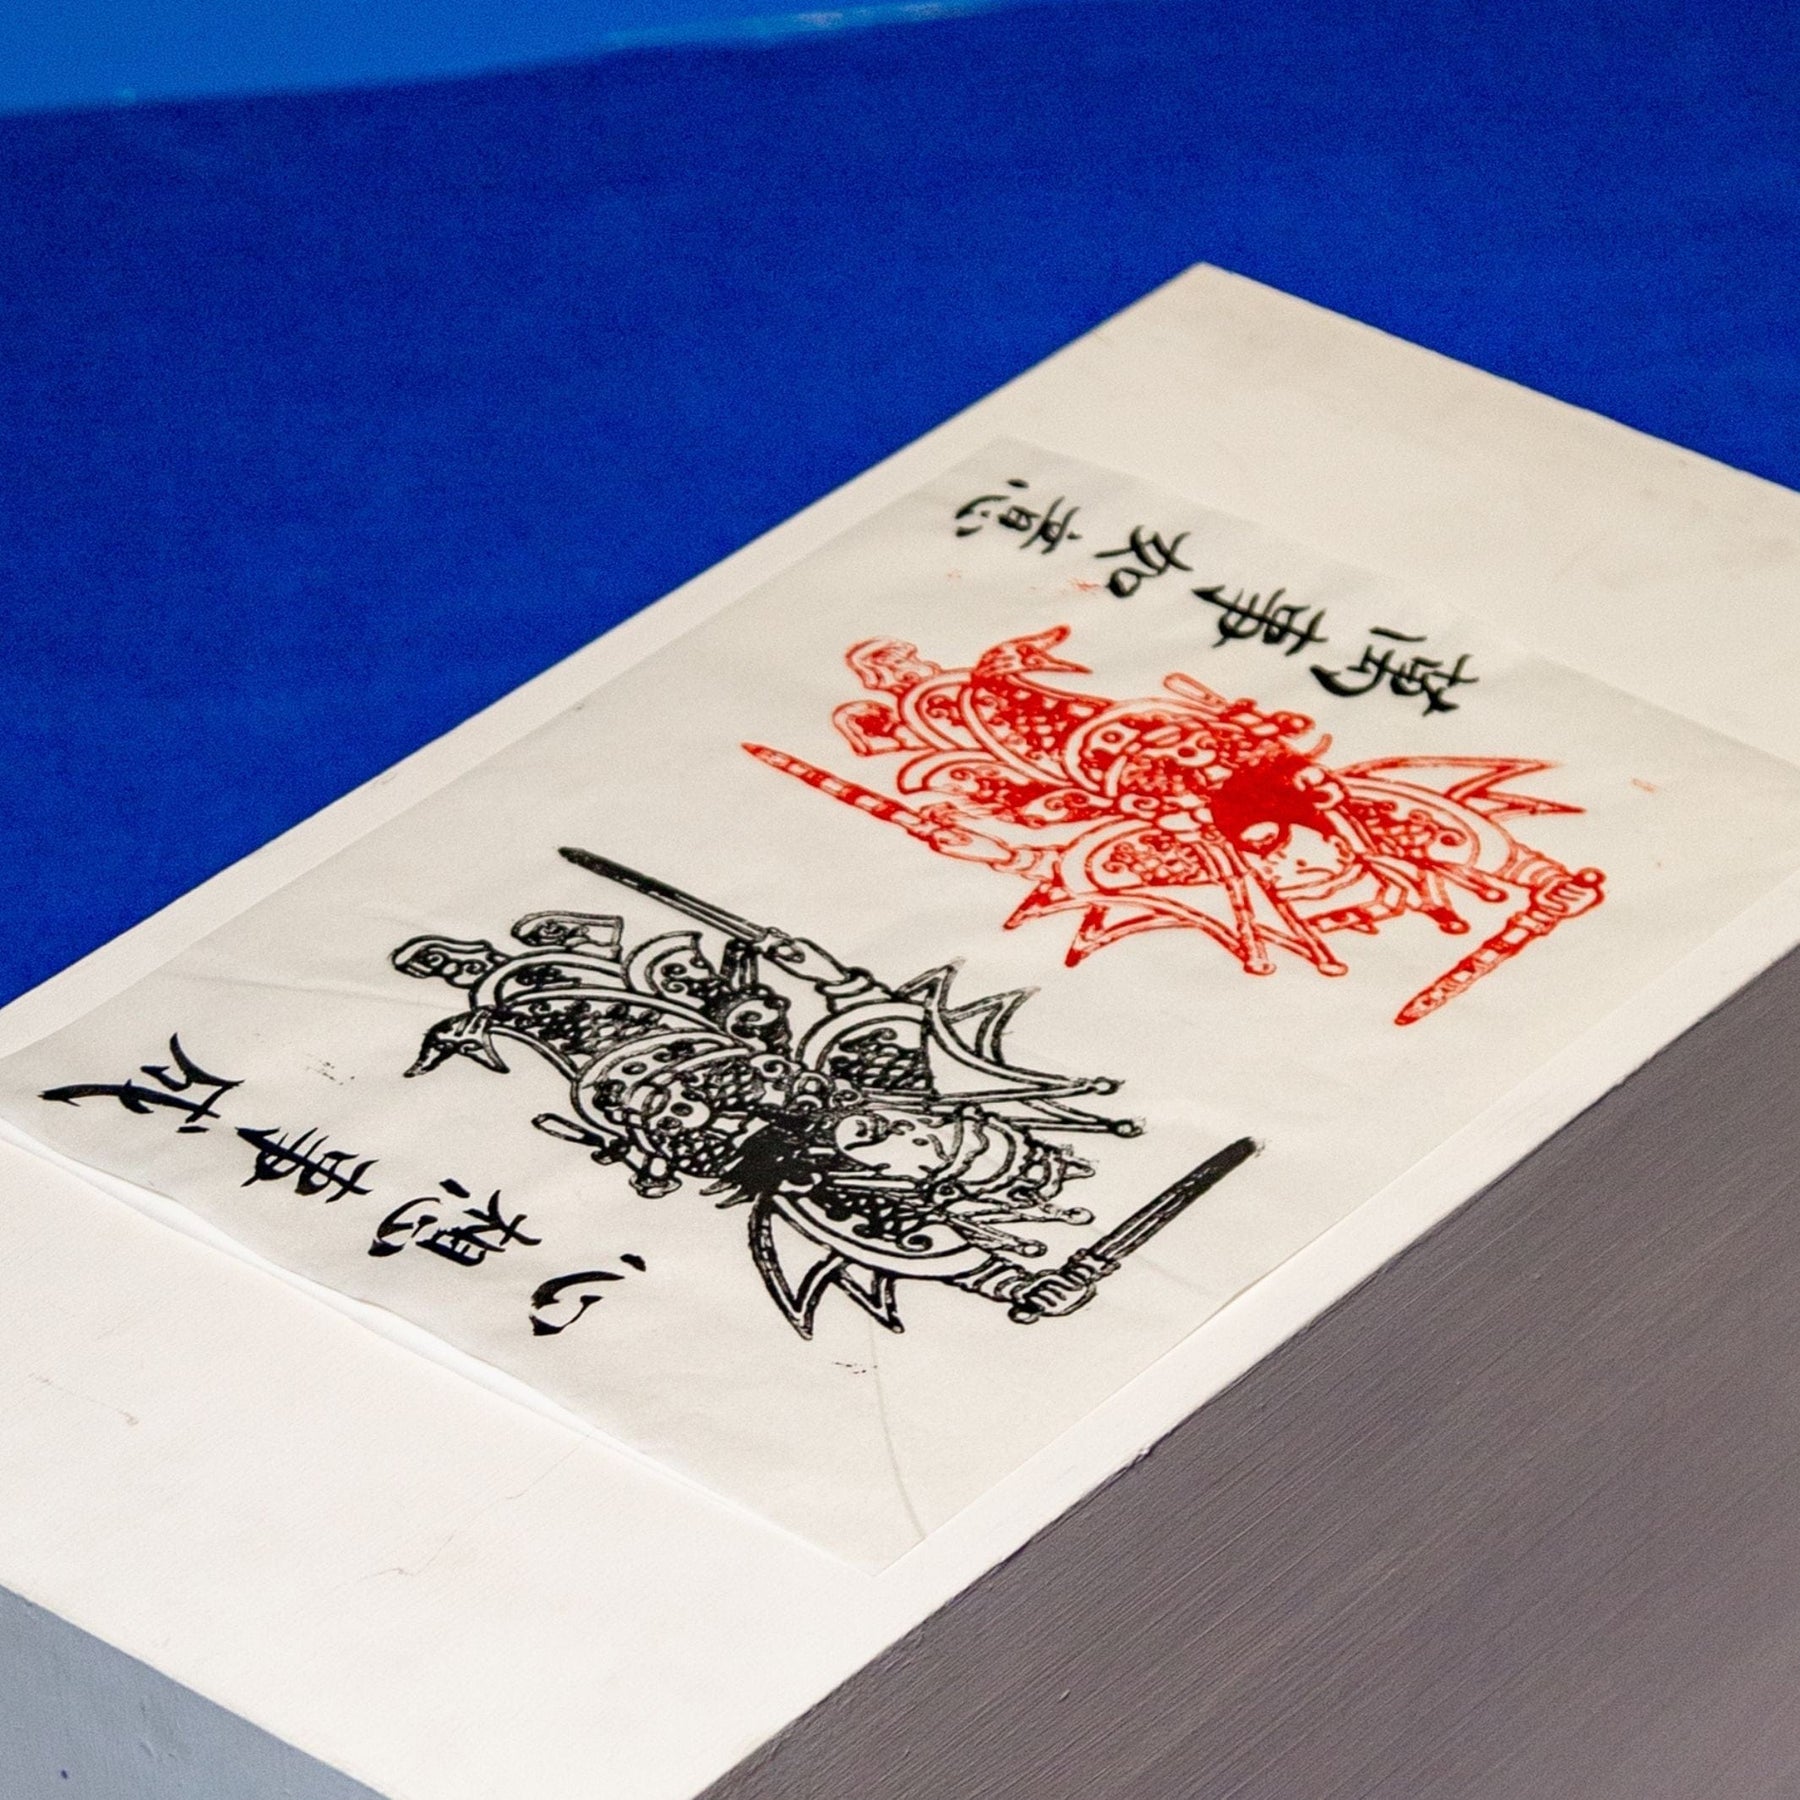 萬事如意
心想事成